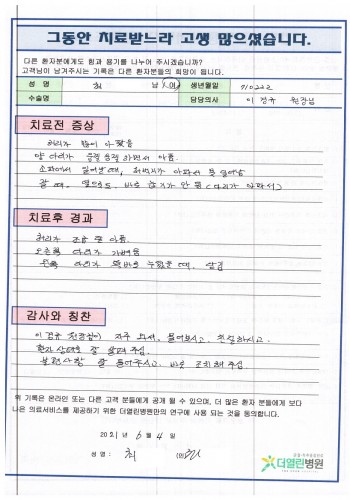 그동안 치료받느라 고생 많으셨습니다.
다른 환자분에게도 힘과 용기를 나누어 주시겠습니까?
고객님이 남겨주시는 기록은 다른 환자분들의 희망이 됩니다.
성 명 최 남 / 여 생년월일 710222
수술명 담당의사 이 정규 원장님
치료전 증상
허리가 많이 아팠음
양 다리가 아픔.
소파에서 일어날 때, 허벅지가 아파서 못 일어남
잘 때, 옆으로도, 바로 눕기가 안 됨 (다리가 아파서)
치료후 경과
허리가 조금 덜 아픔.
오른쪽 다리가 가벼움
왼쪽 다리가 똑바로 누웠을 때, 당김
감사와 칭찬
이 정규 원장님이 자주 오셔서, 물어보시고, 친절하시고.
환자 상태를 잘 살펴 주심.
불편사항 잘 들어주시고, 바로 조치해 주심.
위 기록은 온라인 또는 다른 고객 분들에게 공개 될 수 있으며, 더 많은 환자 분들에게 보다
나은 의료서비스를 제공하기 위한 더열린병원만의 연구에 사용 되는 것을 동의합니다.
2021 년 6 월 4 일
성 명 : 최 (인)
더열린병원